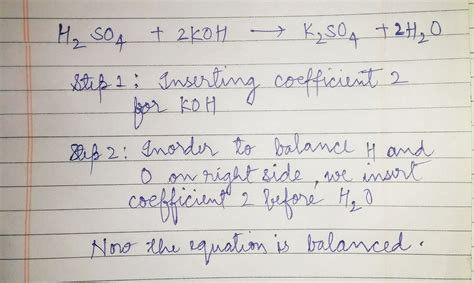 H₂SO₄ + 2KOH → K₂SO₄ + 2H₂O
Step 1 : Inserting coefficient 2
for KOH
Step 2 : Inorder to balance H and
O on right side, we insert
coefficient 2 before H₂O
Now the equation is balanced.